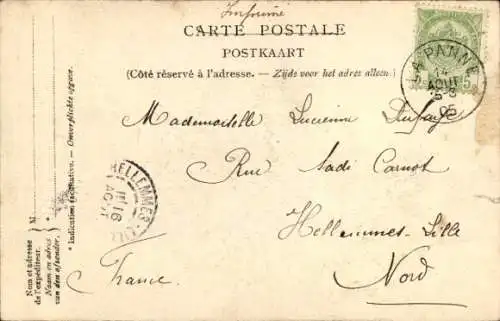 Imprimé
CARTE POSTALE
POSTKAART
(Côté réservé à l'adresse. — Zijde voor het adres alleen.)
LA PANNE
14
AOUT
05
5
Mademoiselle Lucienne
Rue Sadi Carnot
Hellemmes-Lille
Nord
France.
HELLEMMES-LILLE
16
AOUT
M
Nom et adresse
de l'expéditeur.
Naam en adres
van den afzender.
* Indication facultative. — Onverplichte opgave.